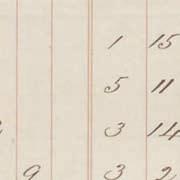 1 15
5 11
3 14
9 3 2